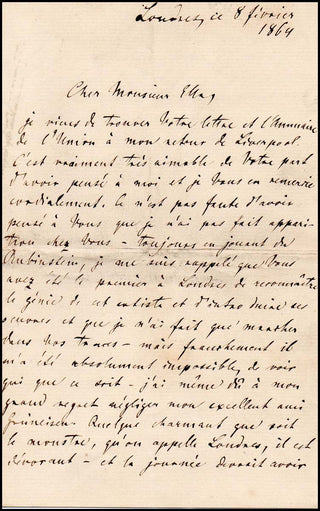 Londres, ce 8 février
1869
Cher Monsieur Ella,
je viens de trouver votre lettre et l'Annuaire
de l'Union à mon retour de Liverpool.
C'est vraiment très aimable de votre part
d'avoir pensé à moi et je vous en remercie
cordialement. Ce n'est pas faute d'avoir
pensé à vous que je n'ai pas fait appari-
tion chez vous – toujours en jouant du
Rubinstein, je me suis rappelé que vous
avez été le premier à Londres de reconnaître
le génie de cet artiste et d'introduire ses
oeuvres et que je n'ai fait que marcher
dans vos traces – mais franchement il
m'a été absolument impossible, de voir
qui que ce soit – j'ai même dû à mon
grand regret négliger mon excellent ami
Quelque charmant que soit
le monstre, qu'on appelle Londres, il est
dévorant – et la journée devrait avoir